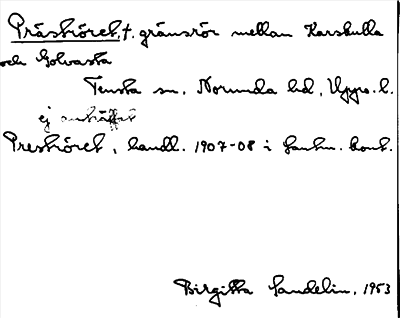 Präströret, †. gränsrör mellan Karskulla
och Golvasta
Tensta sn, Norunda hd, Upps. l.
ej anträffat
Preströret, handl. 1907-08 i lantm. kont.
Birgitta Sandelin, 1953